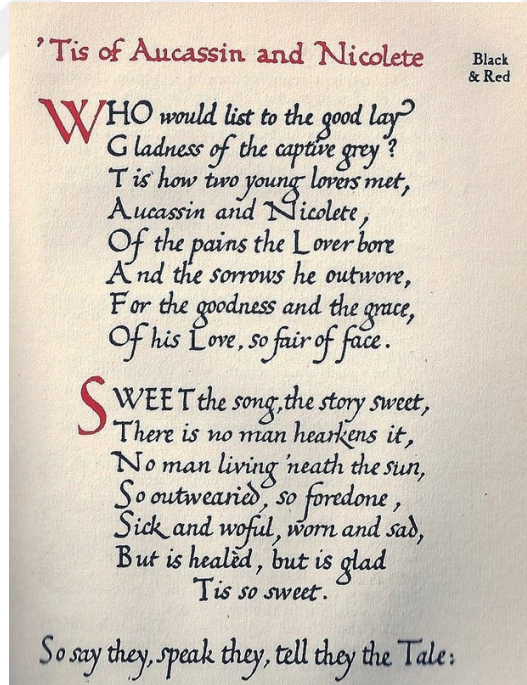 ’Tis of Aucassin and Nicolete
Black
& Red
WHO would list to the good lay
Gladness of the captive grey?
Tis how two young lovers met,
Aucassin and Nicolete,
Of the pains the Lover bore
And the sorrows he outwore,
For the goodness and the grace,
Of his Love, so fair of face.
SWEET the song, the story sweet,
There is no man hearkens it,
No man living 'neath the sun,
So outwearied, so foredone,
Sick and woful, worn and sad,
But is healèd, but is glad
Tis so sweet.
So say they, speak they, tell they the Tale: